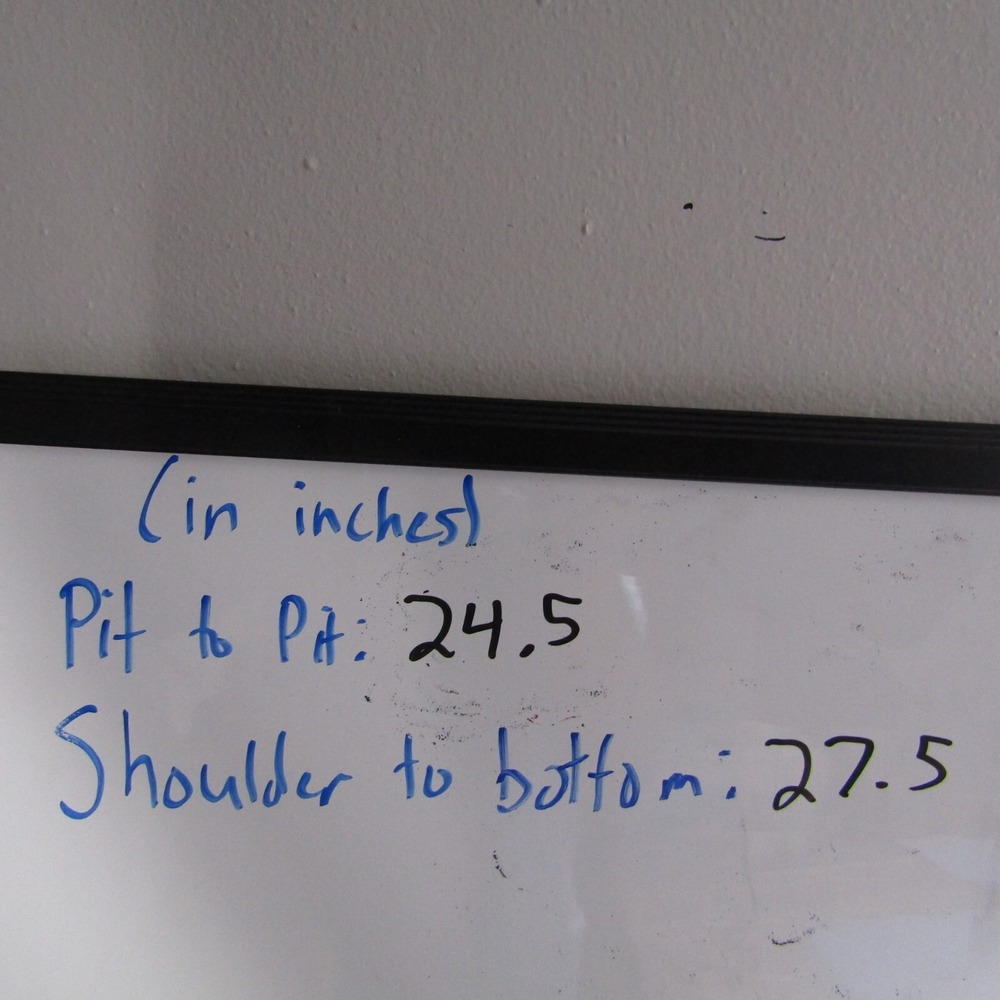 (in inches)
Pit to Pit: 24.5
Shoulder to bottom: 27.5